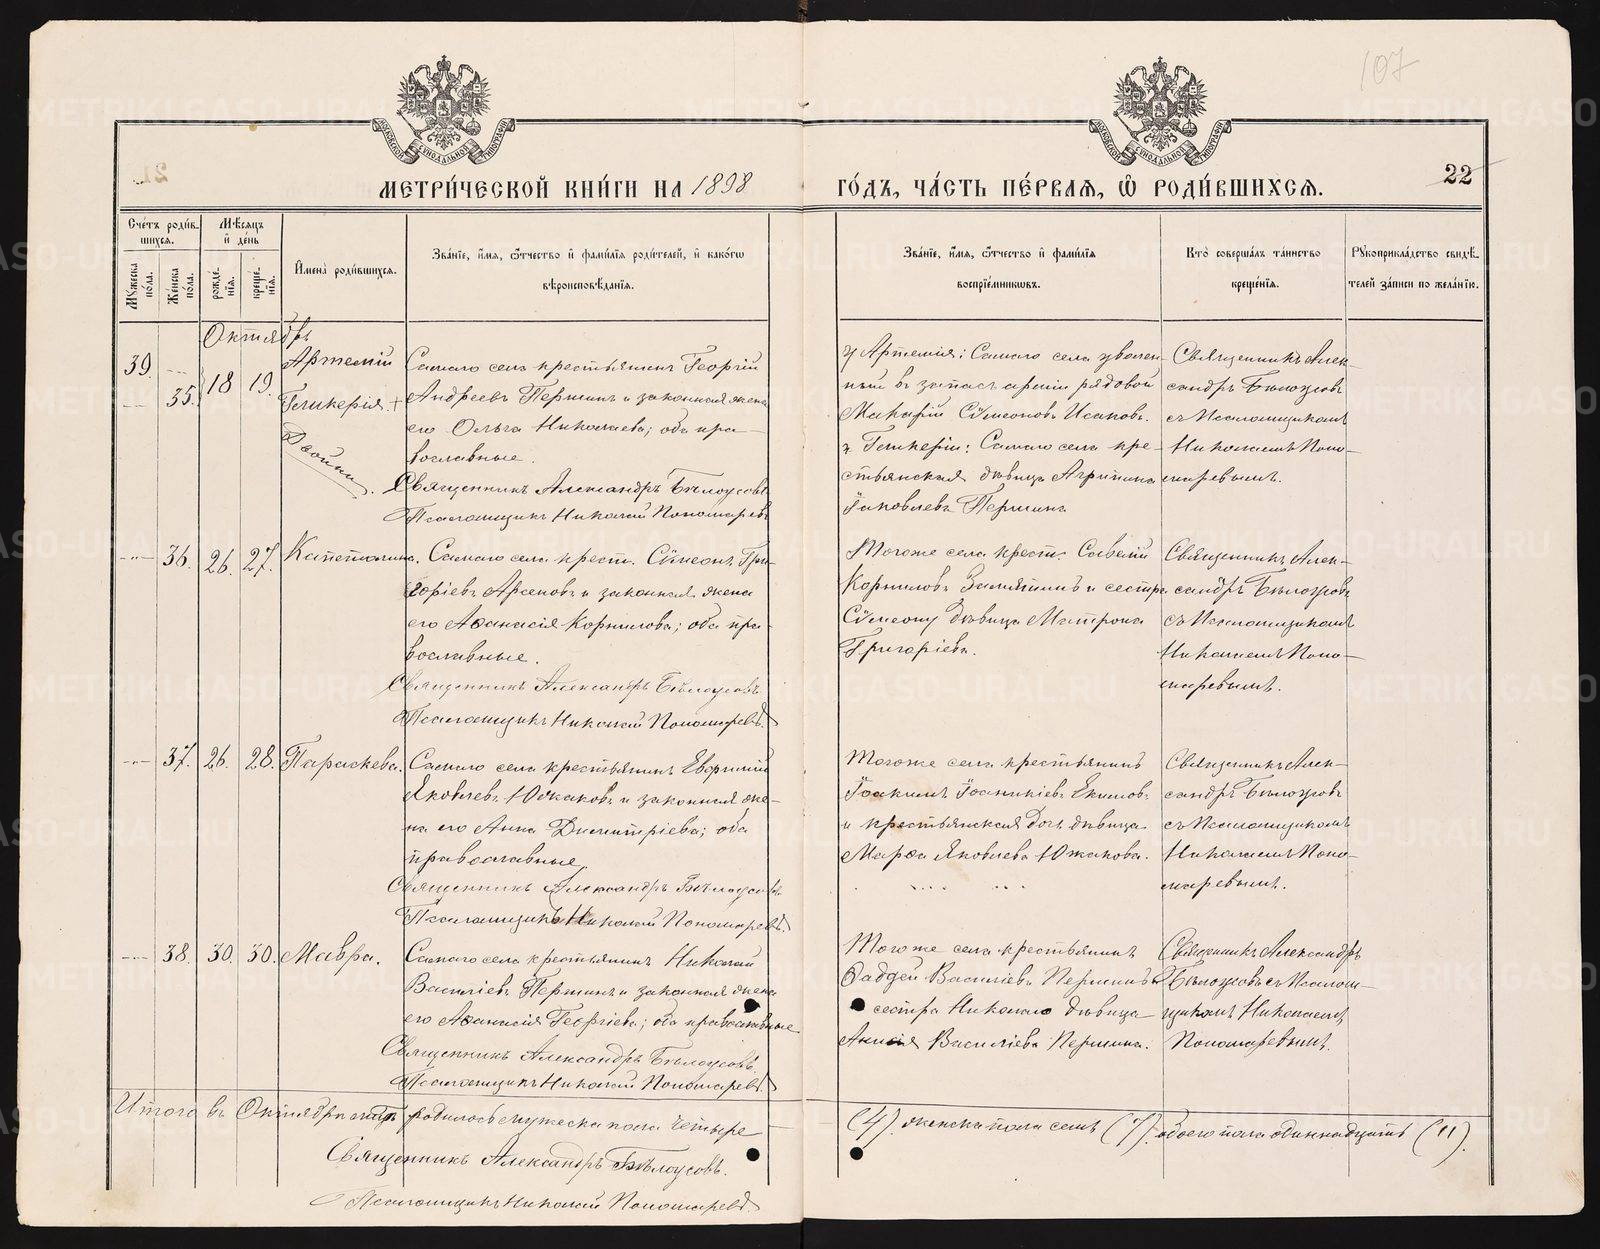 107
МОСКОВСКОЙ СѴНОДАЛЬНОЙ ТИПОГРАФІИ
МОСКОВСКОЙ СѴНОДАЛЬНОЙ ТИПОГРАФІИ
22
МЕТРИ́ЧЕСКОЙ КНИ́ГИ НА 1898
ГО́ДЪ, ЧА́СТЬ ПЕ́РВАЯ, Ѡ РОДИ́ВШИХСЯ.
Сче́тъ роди́в-
шихся.
Мѣ́сяцъ
и́ де́нь
Му́жеска по́ла.
Же́нска по́ла.
рожде́нїя.
креще́нїя.
И҆мена̀ роди́вшихся.
Зва́нїе, и҆́мя, ѻ҆́тчество и҆ фами́лїя роди́телей, и҆ како́гѡ
вѣроисповѣ́данїя.
Зва́нїе, и҆́мя, ѻ҆́тчество и҆ фами́лїя
воспрїе́мникѡвъ.
Кто̀ соверша́лъ та́инство
креще́нїя.
Рꙋкоприкла́дство свидѣ́-
телей за́писи по жела́нїю.
Октябрь
39. 35. 18 19.
Артемій
Гликерія. +
Двойни.
Самаго села крестьянинъ Георгій
Андреевъ Першинъ и законная жена
его Ольга Николаева; оба пра-
вославные.
Священникъ Александръ Бѣлоусовъ
Псаломщикъ Николай Пономаревъ
у Артемія: Самаго села уволен-
ный въ запасъ арміи рядовой
Макарій Сѵмеоновъ Исаковъ.
у Гликеріи: Самаго села кре-
стьянская дѣвица Агрипина
Іаковлева Першина
Священникъ Алек-
сандръ Бѣлоусовъ
съ Псаломщикомъ
Николаемъ Поно-
маревымъ.
36. 26. 27. Капетолина.
Самаго села крест. Сѵмеонъ Гри-
горіевъ Арсеновъ и законная жена
его Аѳанасія Корнилова; оба пра-
вославные.
Священникъ Александръ Бѣлоусовъ
Псаломщикъ Николай Пономаревъ.
Тогоже села крест. Савелій
Корниловъ Замятинъ и сестра
Сѵмеону дѣвица Матрона
Григоріева.
Священникъ Алек-
сандръ Бѣлоусовъ
съ Псаломщикомъ
Николаемъ Поно-
маревымъ.
37. 26. 28. Параскева.
Самаго села крестьянинъ Евфимій
Яковлевъ Южаковъ и законная же-
на его Анна Димитріева; оба
православные
Священникъ Александръ Бѣлоусовъ
Псаломщикъ Николай Пономаревъ.
Тогоже села крестьянинъ
Іоакимъ Іоанникіевъ Екимовъ
и крестьянская дочь дѣвица
Марѳа Яковлева Южакова.
Священникъ Алек-
сандръ Бѣлоусовъ
съ Псаломщикомъ
Николаемъ Поно-
маревымъ.
38. 30. 30. Мавра.
Самаго села крестьянинъ Николай
Васильевъ Першинъ и законная жена
его Аѳанасія Георгіева; оба православные
Священникъ Александръ Бѣлоусовъ.
Псаломщикъ Николай Пономаревъ
Тогоже села крестьянинъ
Ѳаддей Василіевъ Першинъ и
сестра Николаю дѣвица
Анисія Василіева Першина.
Священникъ Александръ
Бѣлоусовъ съ Псалом-
щикомъ Николаемъ
Пономаревымъ.
Итого въ Октябрѣ родилось мужеска пола четыре
(4). женска пола семь (7). обоего пола одиннадцать (11).
Священникъ Александръ Бѣлоусовъ.
Псаломщикъ Николай Пономаревъ.